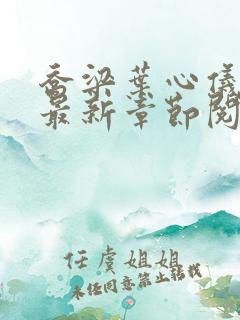 乔梁叶心仪
最新章节阅
任虞姐姐
未经同意禁止转载